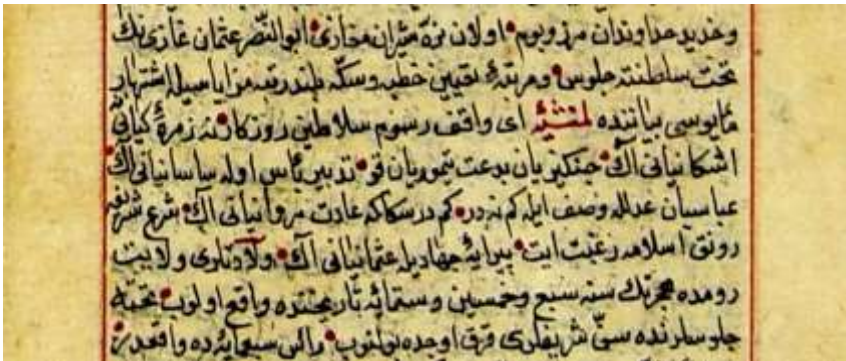 وخديو خداوندان مرز وبوم اولان نره شيران مغازى ابو النصر عثمان غازى نك
تخت سلطنته جلوس ومرتبهٔ تعيين خطبه وسكه بلند رتبه مزاياسيله اشتهار
مأنوسى بياننده لمنشيه اى واقف رسوم سلاطين روزكار نه زمرهٔ كيانى
اشكانيانى آك جنكيزيان بدعت تيموريان قو تدبير ناس اوله ساسانيانى آك
عباسيان عدلله وصف ايله كم نه در كم درسكا كه عادت مروانيانى آك شرع شريفه
رونق اسلامه رغبت ايت پيرايهٔ جهاديله عثمانيانى آك ولادتلرى ولايت
رومده هجرتك سنه سبع وخمسين وستمائه تاريخنده واقع اولوب تخته
جلوسلرنده سن شريفلرى قرق اوچده بولنوب سبعمايه ده واقعدر